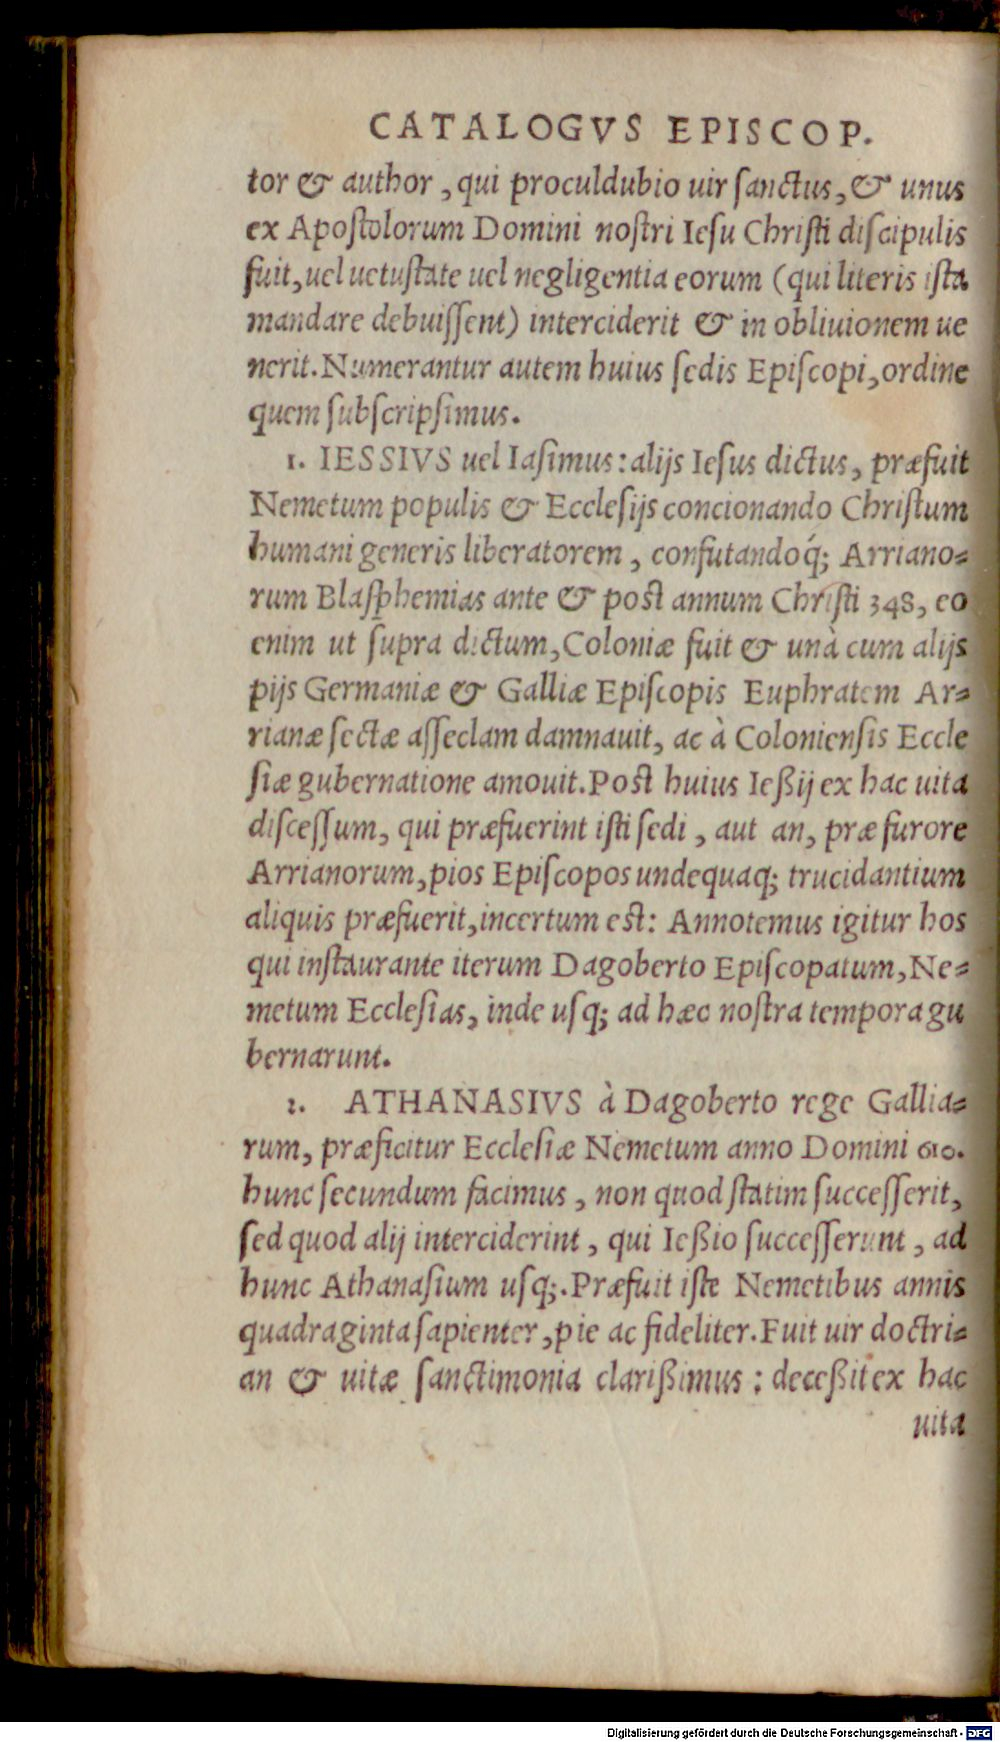 CATALOGVS EPISCOP.
tor & author, qui proculdubio uir ſanctus, & unus
ex Apoſtolorum Domini noſtri Ieſu Chriſti diſcipulis
fuit, uel uetuſtate uel negligentia eorum (qui literis iſta
mandare debuiſſent) interciderit & in obliuionem ue
nerit. Numerantur autem huius ſedis Epiſcopi, ordine
quem ſubſcripſimus.
1. IESSIVS uel Iaſimus: alijs Ieſus dictus, præfuit
Nemetum populis & Eccleſijs concionando Chriſtum
humani generis liberatorem, confutandoq́; Arriano-
rum Blaſphemias ante & poſt annum Chriſti 348, eo
enim ut ſupra dictum, Coloniæ fuit & unà cum alijs
pijs Germaniæ & Galliæ Epiſcopis Euphratem Ar-
rianæ ſectæ aſſeclam damnauit, ac à Colonienſis Eccle
ſiæ gubernatione amouit. Poſt huius Ießij ex hac uita
diſceſſum, qui præfuerint iſti ſedi, aut an, præ furore
Arrianorum, pios Epiſcopos undequaq; trucidantium
aliquis præfuerit, incertum eſt: Annotemus igitur hos
qui inſtaurante iterum Dagoberto Epiſcopatum, Ne-
metum Eccleſias, inde uſq; ad hæc noſtra tempora gu
bernarunt.
2. ATHANASIVS à Dagoberto rege Gallia-
rum, præficitur Eccleſiæ Nemetum anno Domini 610.
hunc ſecundum facimus, non quod ſtatim ſucceſſerit,
ſed quod alij interciderint, qui Ießio ſucceſſerunt, ad
hunc Athanaſium uſq;. Præfuit iſte Nemetibus annis
quadraginta ſapienter, pie ac fideliter. Fuit uir doctri-
an & uitæ ſanctimonia clarißimus: deceßit ex hac
uita
Digitalisierung gefördert durch die Deutsche Forschungsgemeinschaft - DFG